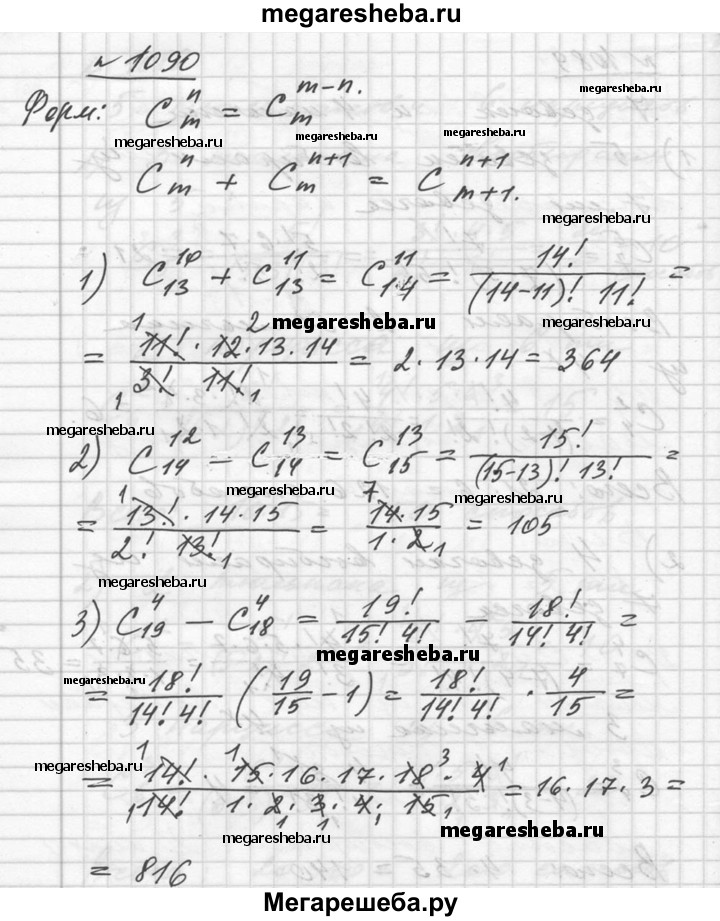 megaresheba.ru
№ 1090
Форм: C_m^n = C_m^{m-n}.
megaresheba.ru megaresheba.ru megaresheba.ru
C_m^n + C_m^{n+1} = C_{m+1}^{n+1}.
megaresheba.ru
1) C_{13}^{10} + C_{13}^{11} = C_{14}^{11} = \frac{14!}{(14-11)! 11!} =
megaresheba.ru megaresheba.ru
= \frac{11! · 12 · 13 · 14}{3! 11!} = 2 · 13 · 14 = 364
megaresheba.ru
2) C_{14}^{12} - C_{14}^{13} = C_{15}^{13} = \frac{15!}{(15-13)! 13!} =
megaresheba.ru megaresheba.ru
= \frac{13! · 14 · 15}{2! 13!} = \frac{14 · 15}{1 · 2} = 105
megaresheba.ru
3) C_{19}^4 - C_{18}^4 = \frac{19!}{15! 4!} - \frac{18!}{14! 4!} =
megaresheba.ru
megaresheba.ru
= \frac{18!}{14! 4!} (\frac{19}{15} - 1) = \frac{18!}{14! 4!} · \frac{4}{15} =
megaresheba.ru megaresheba.ru
= \frac{14! · 15 · 16 · 17 · 18 · 4}{14! 1 · 2 · 3 · 4 · 15} = 16 · 17 · 3 =
megaresheba.ru megaresheba.ru
= 816
Мегарешеба.ру